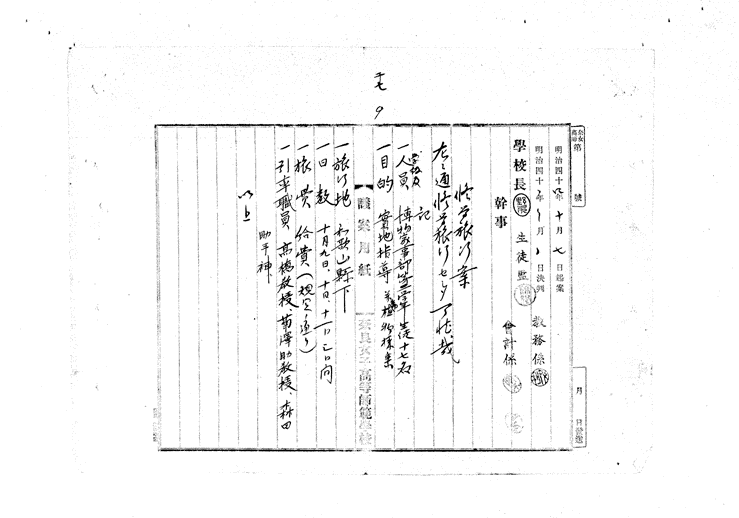 十七
9
奈女高師 第 號
明治四十四年十月七日起案
明治四十 年 月 日決判
月 日發送
學校長
生徒監
教務係
幹事
會計係
修學旅行案
左ノ通修學旅行セシメ可然哉
記
一人員 學級及 博物家事部第三學年生徒十七名
一目的 實地指導 並植物採集
議案用紙
奈良女子高等師範學校
一旅行地 和歌山縣下
一日數 十月九日、十日、十一日 三日間
一旅費 給費(規定ノ通リ)
一引率職員 高橋教授 菊澤助教授、森田
助手神、
以上